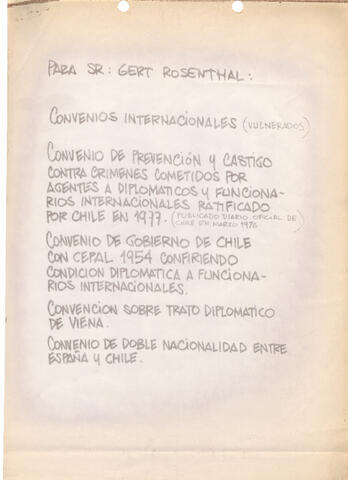 PARA SR: GERT ROSENTHAL:
CONVENIOS INTERNACIONALES (VULNERADOS)
CONVENIO DE PREVENCIÓN Y CASTIGO
CONTRA CRIMENES COMETIDOS POR
AGENTES A DIPLOMATICOS Y FUNCIONA-
RIOS INTERNACIONALES RATIFICADO
POR CHILE EN 1977. (PUBLICADO DIARIO OFICIAL DE
CHILE EN MARZO 1976)
CONVENIO DE GOBIERNO DE CHILE
CON CEPAL 1954 CONFIRIENDO
CONDICION DIPLOMATICA A FUNCIONA-
RIOS INTERNACIONALES.
CONVENCION SOBRE TRATO DIPLOMATICO
DE VIENA.
CONVENIO DE DOBLE NACIONALIDAD ENTRE
ESPAÑA Y CHILE.